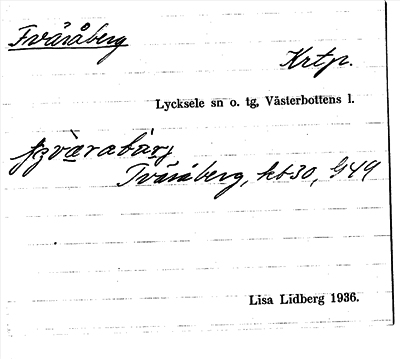 Tväråberg
Krtp.
Lycksele sn o. tg, Västerbottens l.
Tväråberg, kb 30, G49
Lisa Lidberg 1936.